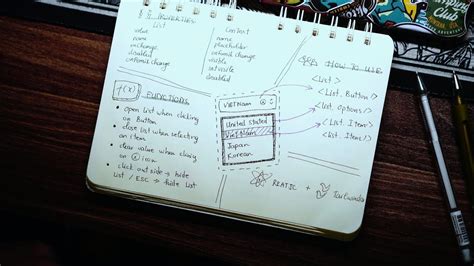 PROPERTIES
List
value
name
onchange
disabled
onformik change
Context
name
placeholder
onformik change
visible
setvisible
disabled
f(x) FUNCTIONS
• open list when clicking
on Button
• close list when selecting
an item
• clear value when
on icon
• click outside → hide
list / ESC → hide list
VIETNAM
United States
VIETNAM
Japan
Korean
HOW TO USE
<List>
<List. Button/>
<List. Options/>
<List. Item/>
<List. Item/>
REACTJS + Tailwindcss